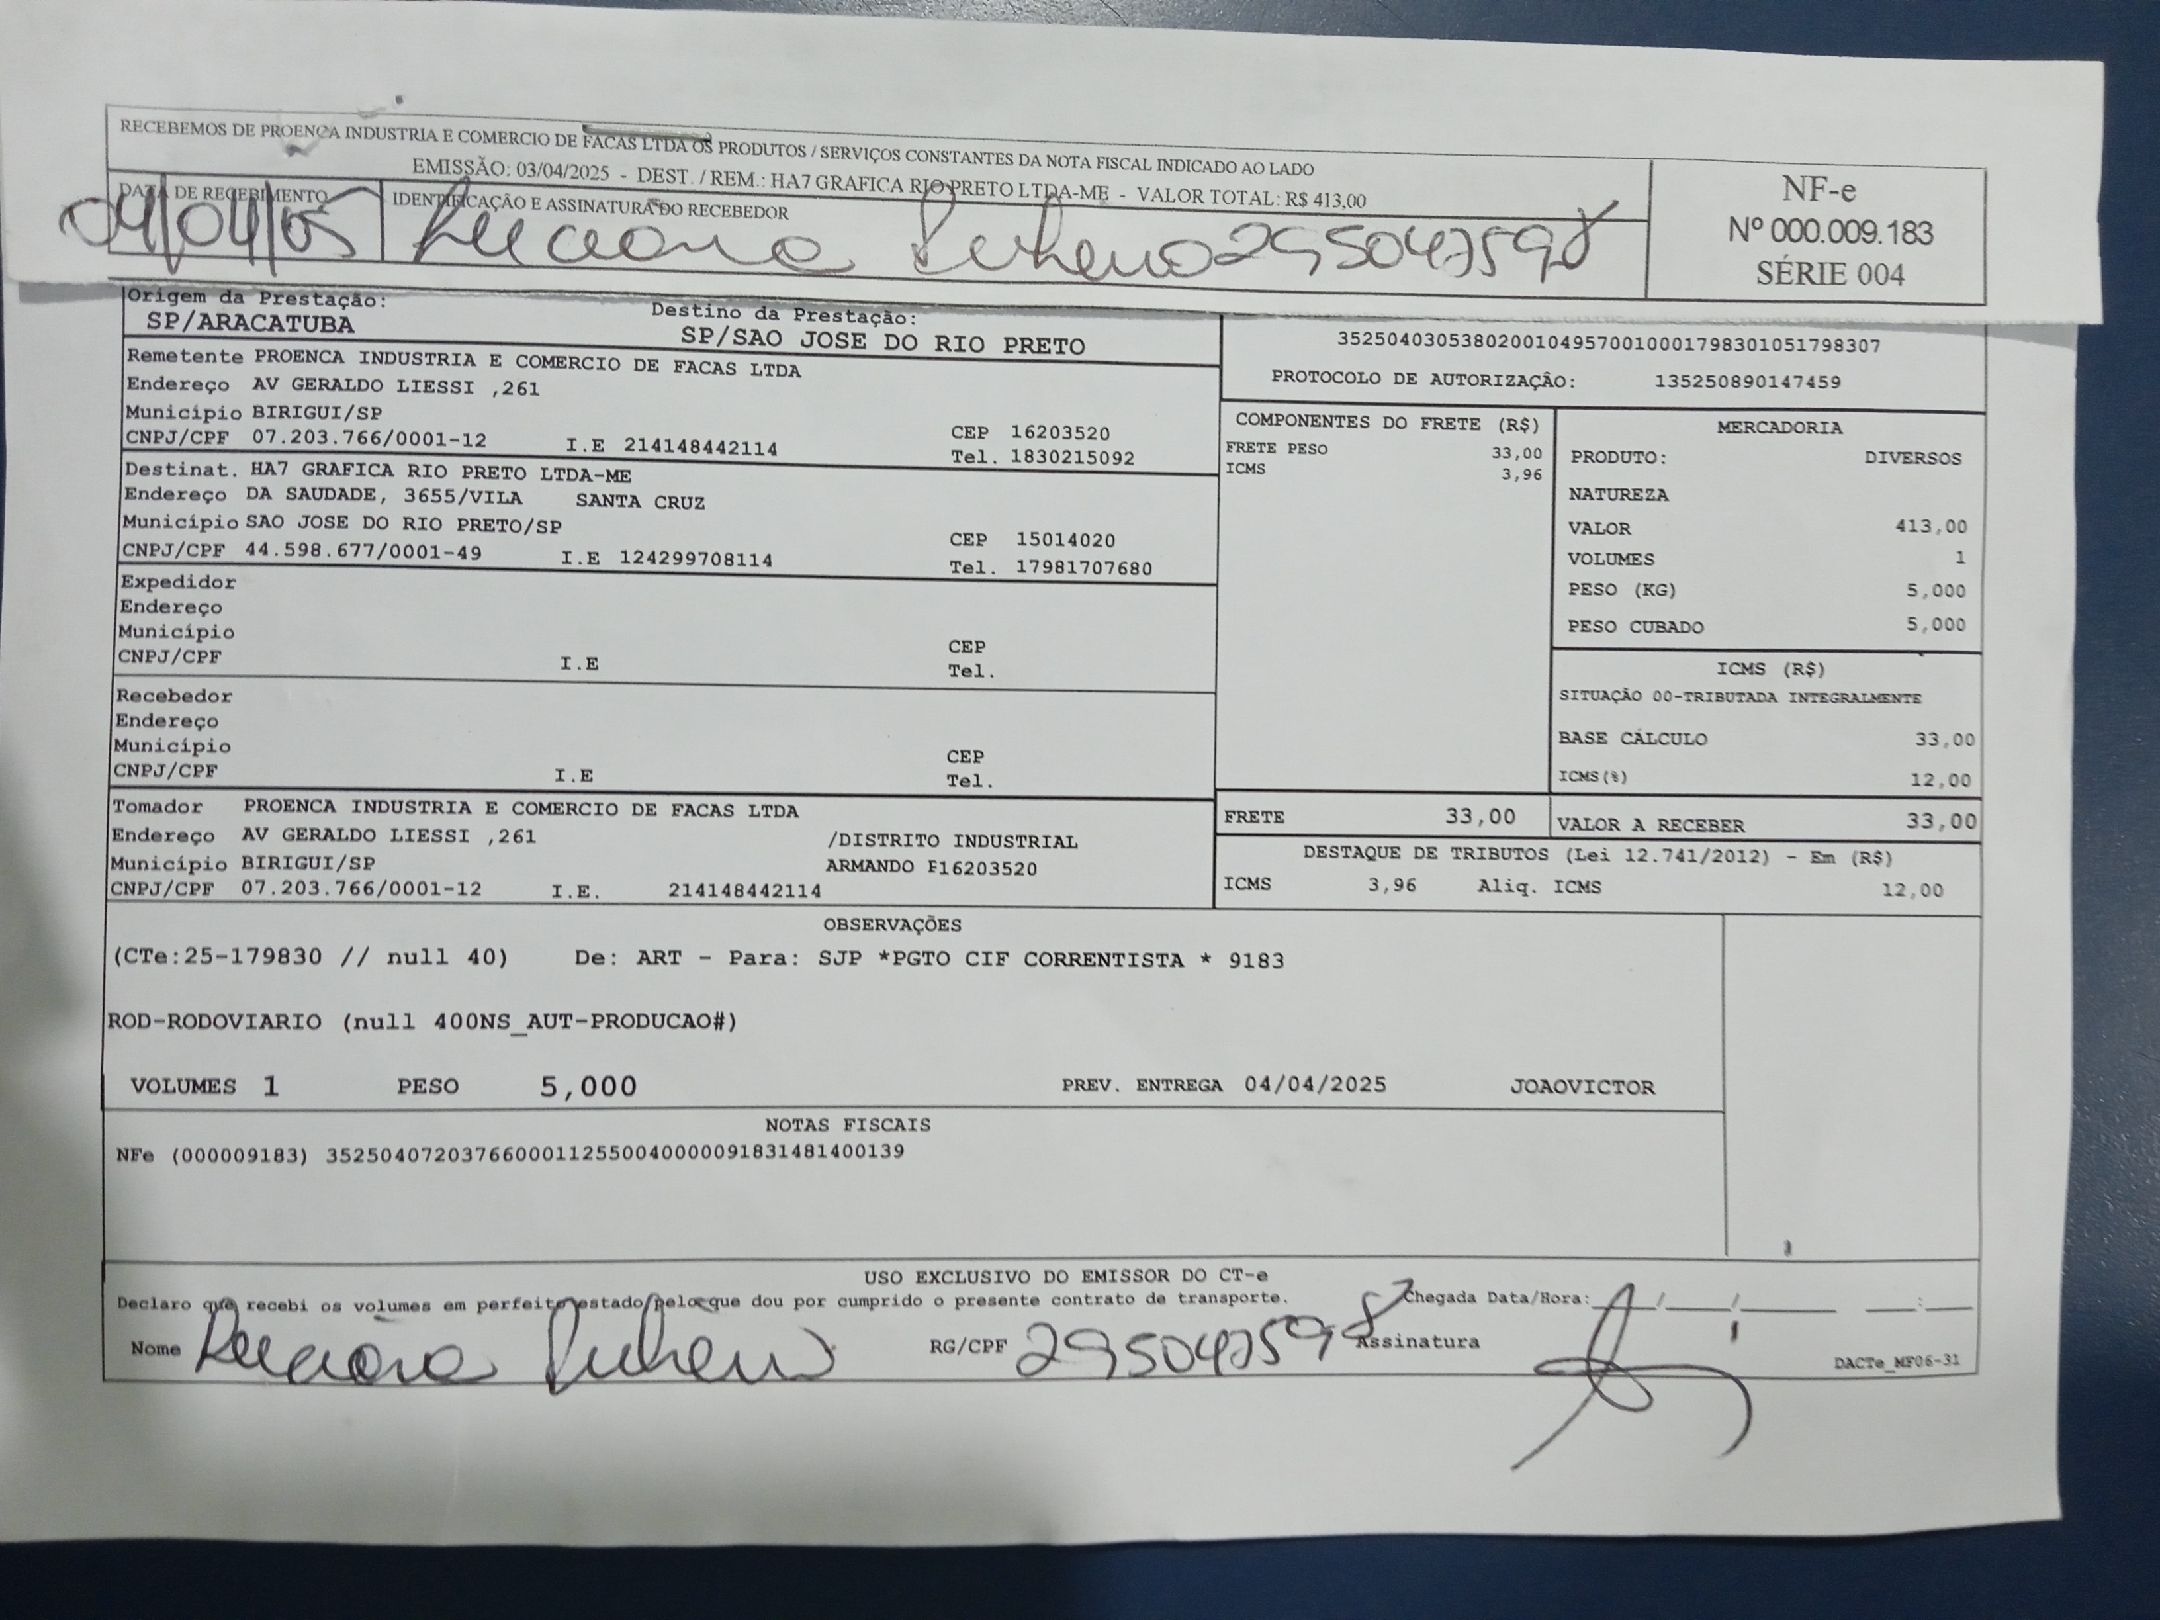 RECEBEMOS DE PROENÇA INDUSTRIA E COMERCIO DE FACAS LTDA OS PRODUTOS / SERVIÇOS CONSTANTES DA NOTA FISCAL INDICADO AO LADO
EMISSÃO: 03/04/2025 - DEST. / REM.: HA7 GRAFICA RIO PRETO LTDA-ME - VALOR TOTAL: R$ 413,00
DATA DE RECEBIMENTO
IDENTIFICAÇÃO E ASSINATURA DO RECEBEDOR
04/04/05
NF-e
Nº 000.009.183
SÉRIE 004
Origem da Prestação:
SP/ARACATUBA
Destino da Prestação:
SP/SAO JOSE DO RIO PRETO
35250403053802001049570010001798301051798307
PROTOCOLO DE AUTORIZAÇÃO: 135250890147459
Remetente PROENCA INDUSTRIA E COMERCIO DE FACAS LTDA
Endereço AV GERALDO LIESSI ,261
Município BIRIGUI/SP
CEP 16203520
CNPJ/CPF 07.203.766/0001-12 I.E 214148442114
Tel. 1830215092
Destinat. HA7 GRAFICA RIO PRETO LTDA-ME
Endereço DA SAUDADE, 3655/VILA SANTA CRUZ
Município SAO JOSE DO RIO PRETO/SP
CEP 15014020
CNPJ/CPF 44.598.677/0001-49 I.E 124299708114
Tel. 17981707680
Expedidor
Endereço
Município
CEP
CNPJ/CPF I.E
Tel.
Recebedor
Endereço
Município
CEP
CNPJ/CPF I.E
Tel.
Tomador PROENCA INDUSTRIA E COMERCIO DE FACAS LTDA
Endereço AV GERALDO LIESSI ,261 /DISTRITO INDUSTRIAL
Município BIRIGUI/SP ARMANDO F16203520
CNPJ/CPF 07.203.766/0001-12 I.E. 214148442114
COMPONENTES DO FRETE (R$)
FRETE PESO 33,00
ICMS 3,96
MERCADORIA
PRODUTO: DIVERSOS
NATUREZA
VALOR 413,00
VOLUMES 1
PESO (KG) 5,000
PESO CUBADO 5,000
ICMS (R$)
SITUAÇÃO 00-TRIBUTADA INTEGRALMENTE
BASE CÁLCULO 33,00
ICMS(%) 12,00
FRETE 33,00
VALOR A RECEBER 33,00
DESTAQUE DE TRIBUTOS (Lei 12.741/2012) - Em (R$)
ICMS 3,96 Aliq. ICMS 12,00
OBSERVAÇÕES
(CTe:25-179830 // null 40) De: ART - Para: SJP *PGTO CIF CORRENTISTA * 9183
ROD-RODOVIARIO (null 400NS_AUT-PRODUCAO#)
VOLUMES 1 PESO 5,000 PREV. ENTREGA 04/04/2025 JOAOVICTOR
NOTAS FISCAIS
NFe (000009183) 35250407203766000112550040000091831481400139
USO EXCLUSIVO DO EMISSOR DO CT-e
Declaro que recebi os volumes em perfeito estado pelo que dou por cumprido o presente contrato de transporte.
Chegada Data/Hora: / / :
Nome
RG/CPF
Assinatura
DACTe_MF06-31